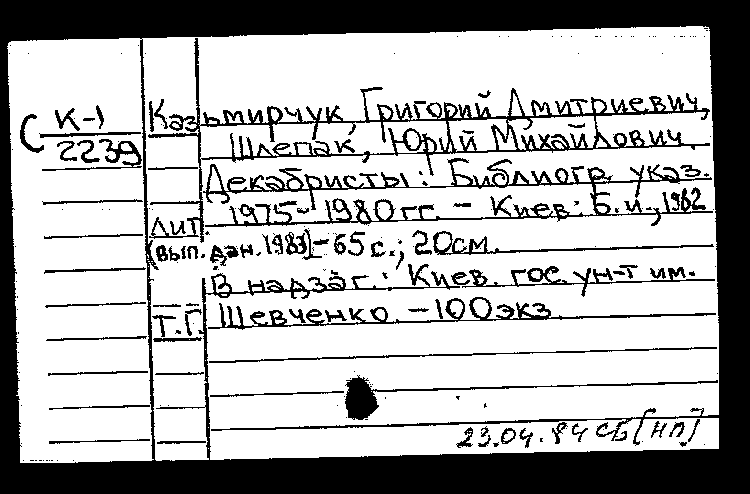 С К-1 Казьмирчук, Григорий Дмитриевич,
2239 Шлепак, Юрий Михайлович.
Декабристы: Библиогр. указ.
1975-1980 гг. - Киев: Б.и., 1982
лит.
(вып. дан. 1983) - 65 с.; 20см.
В надзаг.: Киев. гос. ун-т им.
Т.Г. Шевченко. - 100 экз.
23.04.84 СБ [НП]